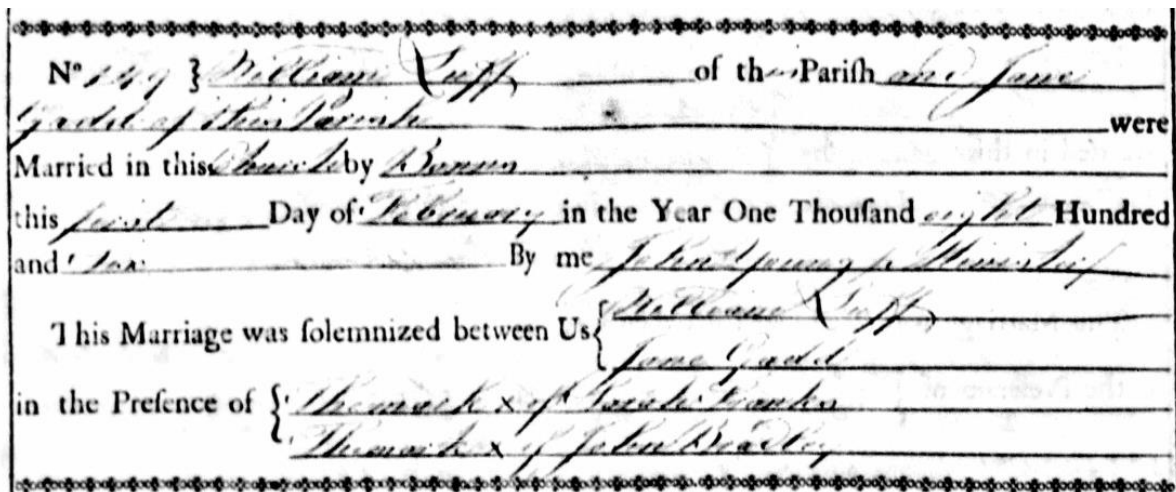 Nº 149 } William Luff of this Pariſh and Jane
Gadd of this Parish were
Married in this Church by Banns
this first Day of February in the Year One Thouſand eight Hundred
and By me John Young Minister
This Marriage was ſolemnized between Us { William Luff
Jane Gadd
in the Preſence of { The mark x of Sarah Franks
The mark x of John Bradley